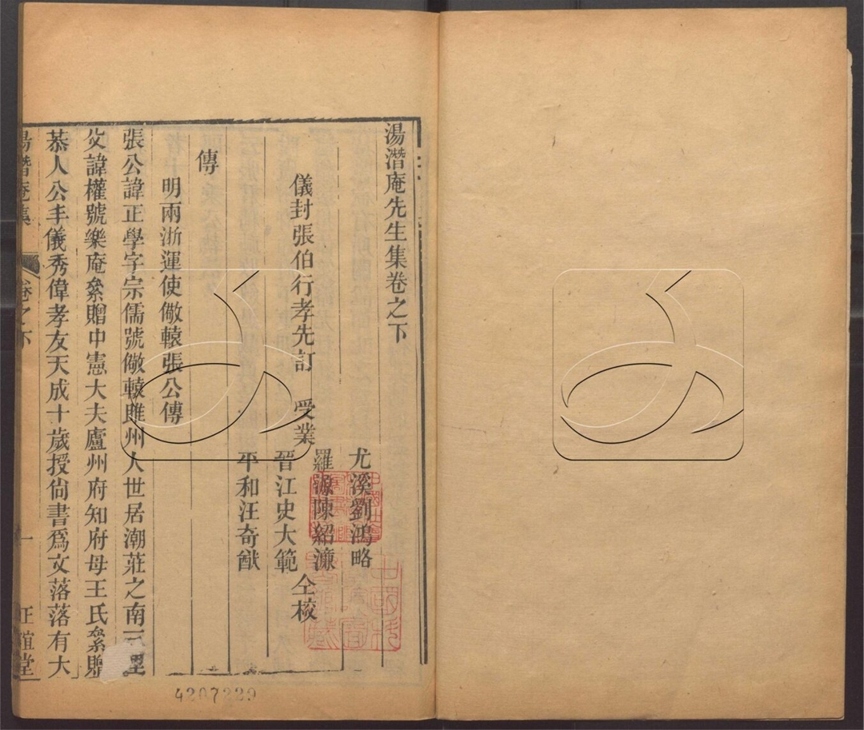 湯潛庵先生集卷之下
尤溪劉鴻略
儀封張伯行孝先訂 受業
羅源陳紹濂
仝校
晉江史大範
平和汪奇猷
傳
明兩浙運使儆轅張公傳
張公諱正學字宗儒號儆轅睢州人世居潮莊之南三里
父諱權號樂庵累贈中憲大夫廬州府知府母王氏累贈
恭人公丰儀秀偉孝友天成十歲授尚書爲文落落有大
湯潛庵集 卷之下 一 正誼堂
4207229